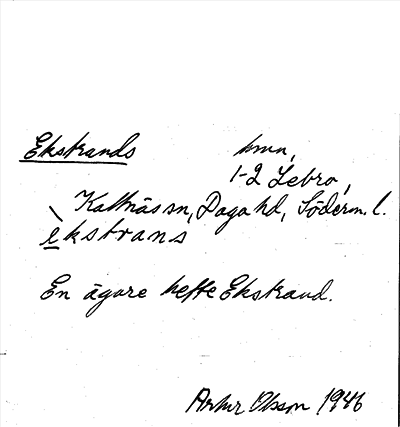 Ekstrands hmn,
1-2 Lebro,
Kattnäs sn, Daga hd, Söderm. l.
èkstrans
En ägare hette Ekstrand.
Artur Olsson 1946